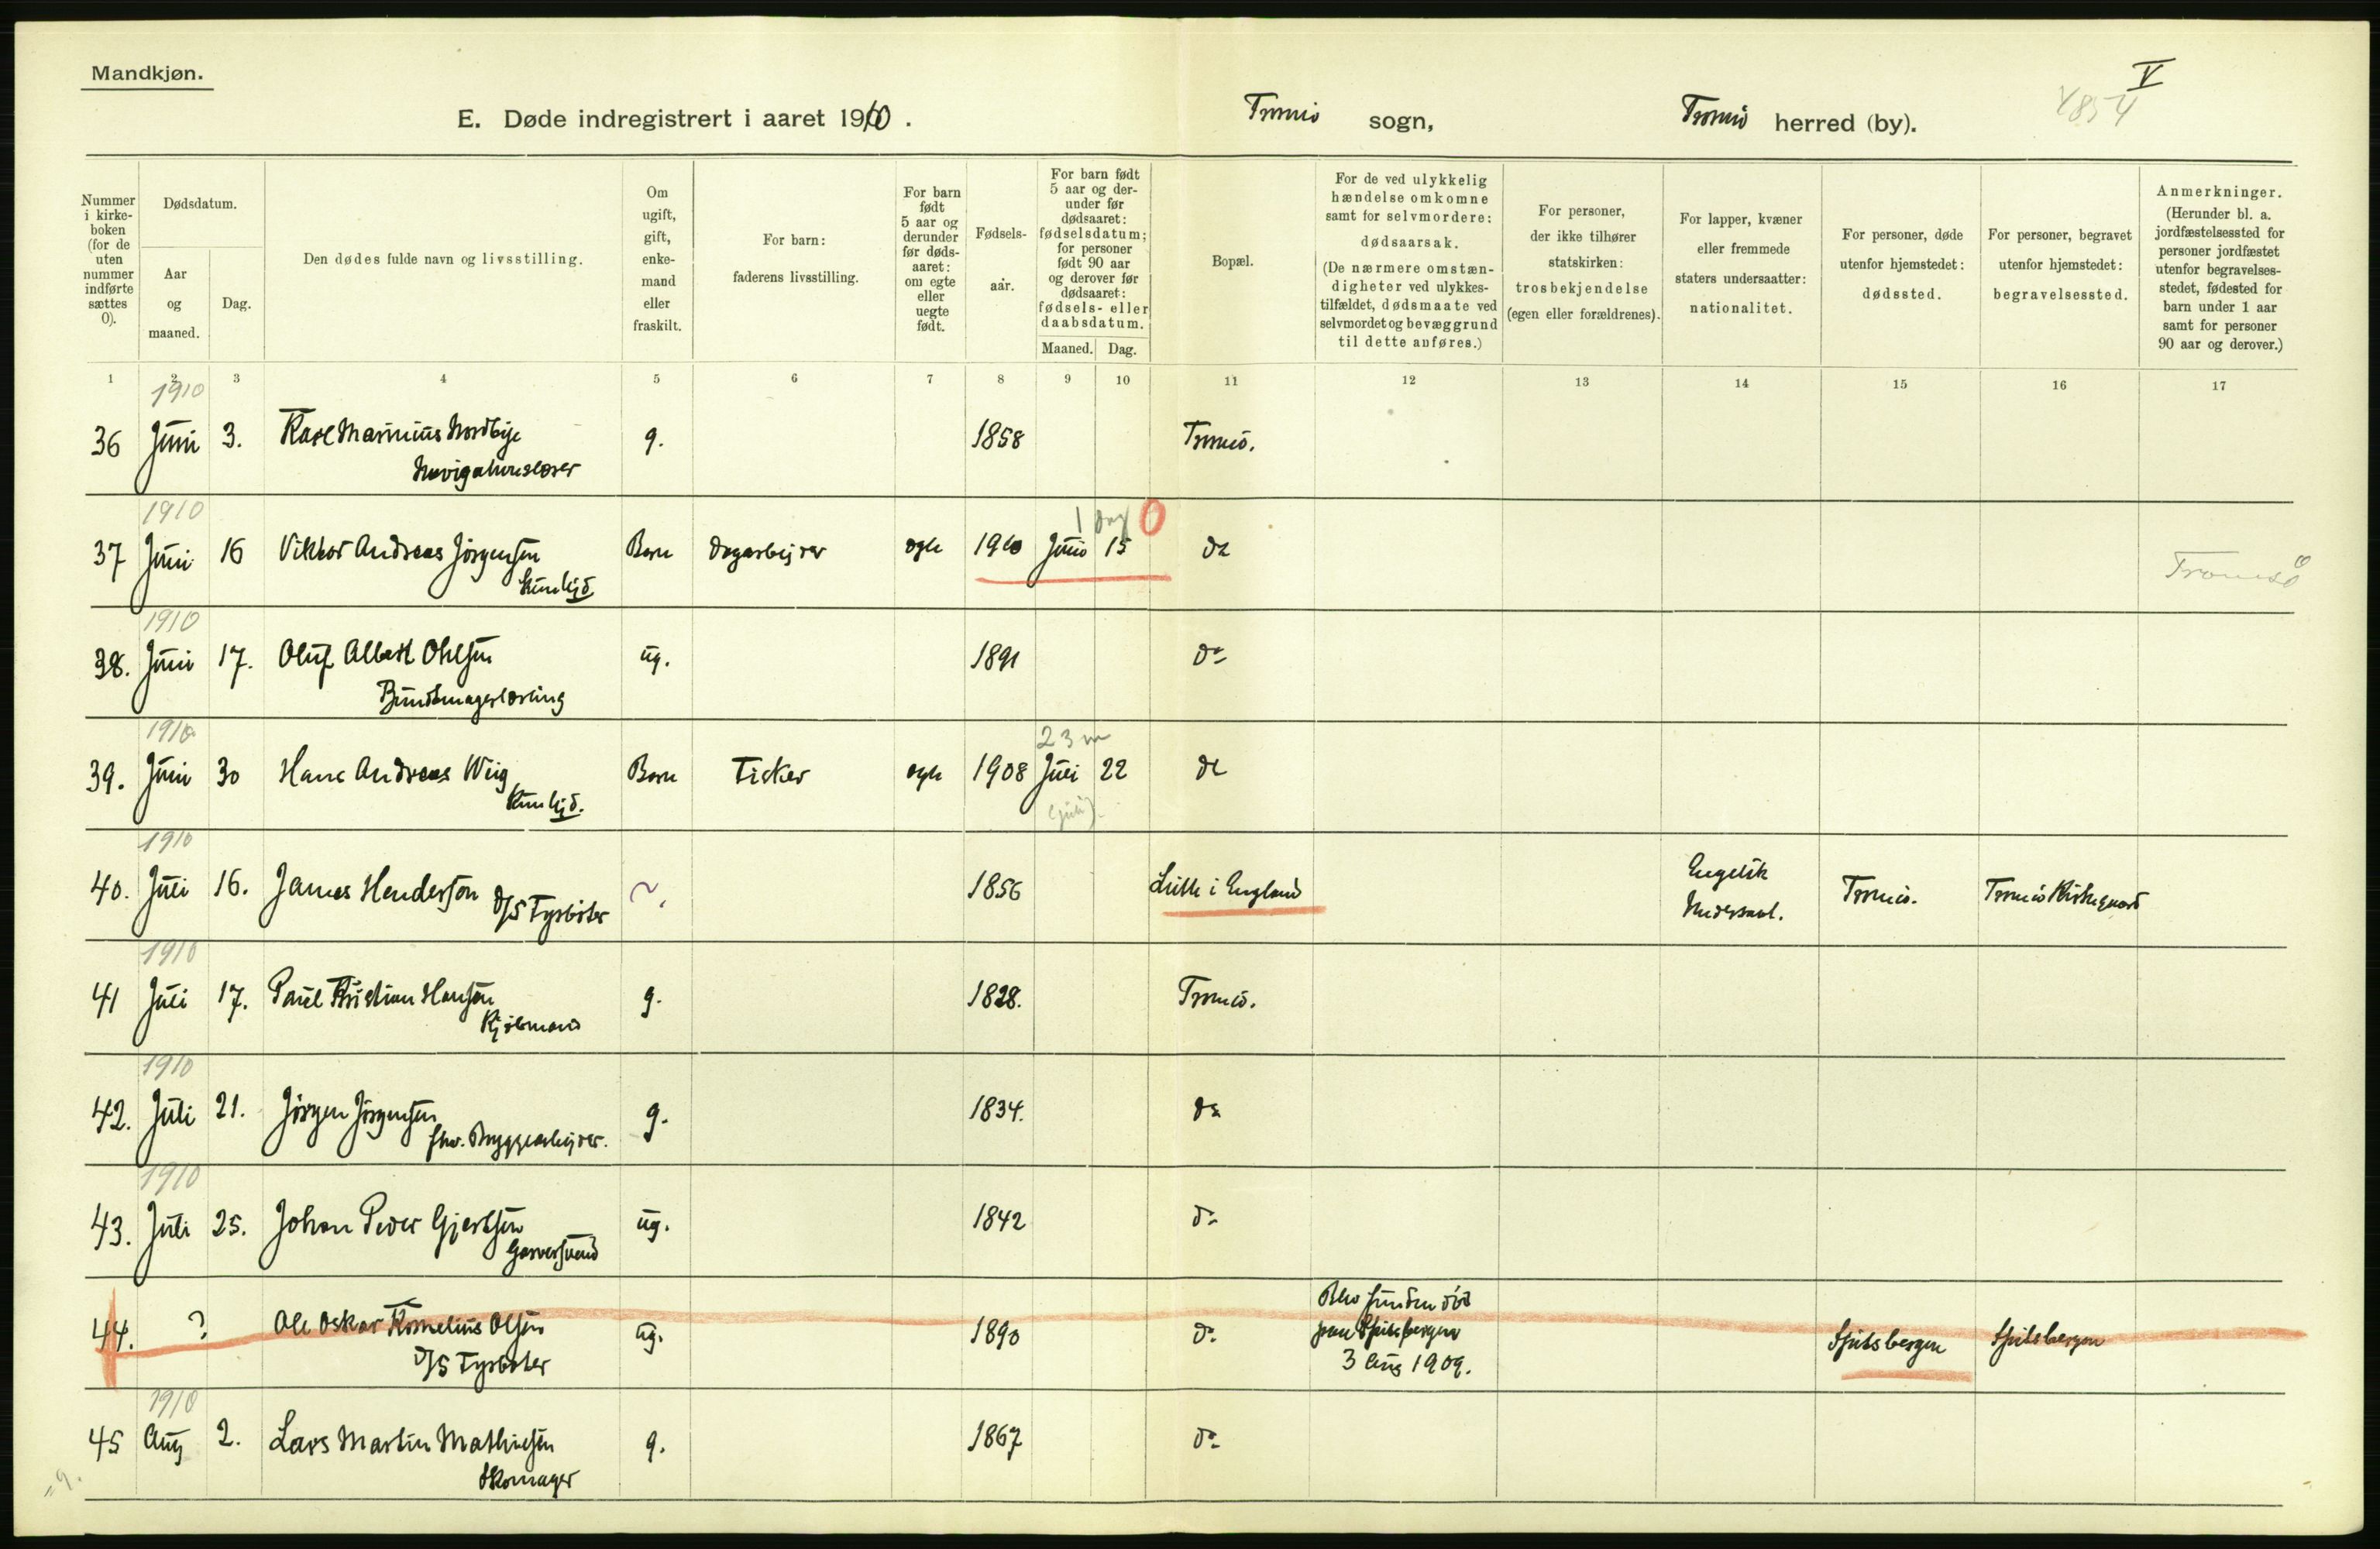 Mandkjøn.
V
4854
E. Døde indregistrert i aaret 1910. Tromsø sogn, Tromsø herred (by).
Nummer i kirke-boken (for de uten nummer indførte sættes 0).
Dødsdatum.
Aar og maaned.
Dag.
Den dødes fulde navn og livsstilling.
Om ugift, gift, enke-mand eller fraskilt.
For barn: faderens livsstilling.
For barn født 5 aar og derunder før døds-aaret: om egte eller uegte født.
Fødsels-aar.
For barn født 5 aar og der-under før dødsaaret: fødselsdatum; for personer født 90 aar og derover før dødsaaret: fødsels- eller daabsdatum.
Maaned. Dag.
Bopæl.
For de ved ulykkelig hændelse omkomne samt for selvmordere: dødsaarsak. (De nærmere omstæn-digheter ved ulykkes-tilfældet, dødsmaate ved selvmordet og bevæggrund til dette anføres.)
For personer, der ikke tilhører statskirken: trosbekjendelse (egen eller forældrenes).
For lapper, kvæner eller fremmede staters undersaatter: nationalitet.
For personer, døde utenfor hjemstedet: dødssted.
For personer, begravet utenfor hjemstedet: begravelsessted.
Anmerkninger. (Herunder bl. a. jordfæstelsessted for personer jordfæstet utenfor begravelses-stedet, fødested for barn under 1 aar samt for personer 90 aar og derover.)
1 2 3 4 5 6 7 8 9 10 11 12 13 14 15 16 17
1910
36 Juni 3. Karl Marinius Nordbye g. 1858 Tromsø.
Navigationslærer
1910 1 Dag 0
37 Juni 16 Viktor Andreas Jörgensen Barn Dagarbejder egte 1910 Juni 15 do Tromsø
hjd.
1910
38. Juni 17. Oluf Albert Ohlsen ug. 1891 do
Bundtmagerlærling
1910 23 m
39. Juni 30 Hans Andreas Wiig Barn Fisker egte 1908 Juli 22 do
hjd. (juli).
1910
40. Juli 16. James Henderson ?. 1856 Leith i England Engelsk Undersaat. Tromsø. Tromsø Kirkegaard
D/S Fyrbøter
1910
41 Juli 17. Paul Kristian Hansen g. 1828. Tromsø.
Kjøbmand
1910
42. Juli 21. Jörgen Jörgensen g. 1834. do
fhv. Bryggearbejder.
1910
43. Juli 25. Johan Peder Gjertsen ug. 1842 do
Garversvend
44. ? Ole Oskar Kornelius Olsen ug. 1890 do Blev funden død paa Spitsbergen 3 Aug 1909. Spitsbergen Spitsbergen
D/S Fyrbøter
1910
45 Aug 2. Lars Martin Mathiesen g. 1867 do
Skomager